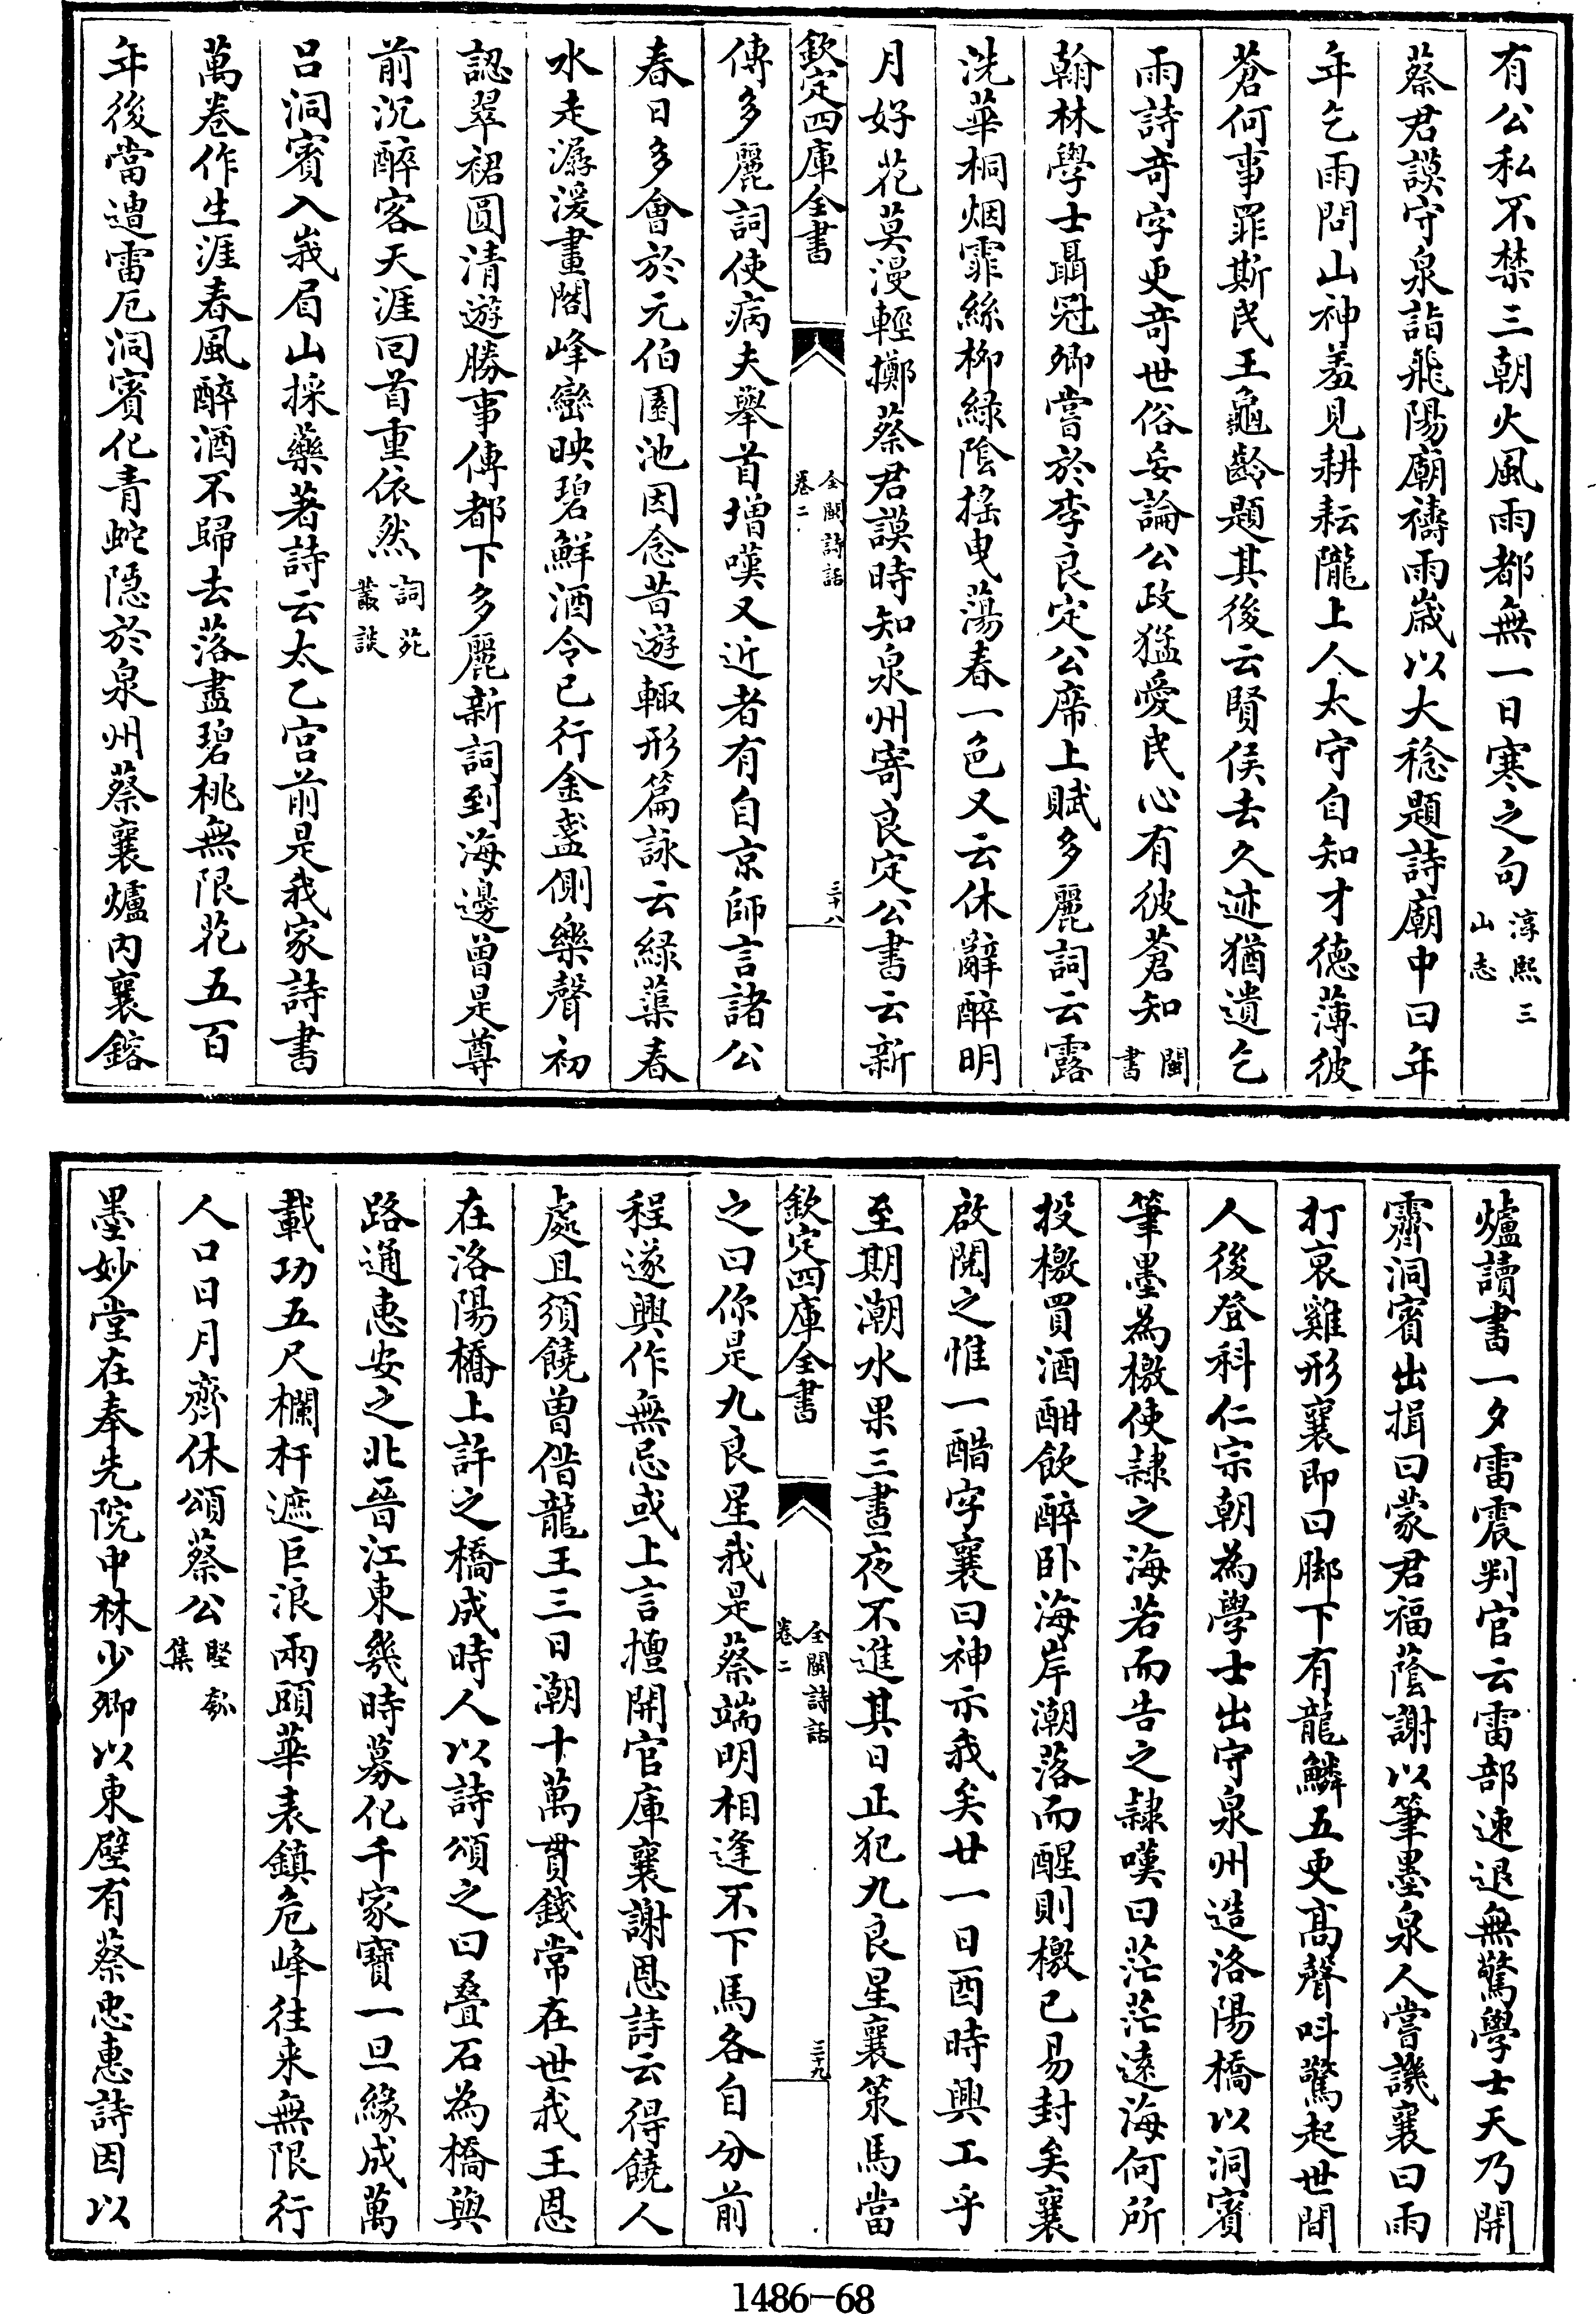 有公私不禁三朝火風雨都無一日寒之句淳熙三山志
蔡君謨守泉詣飛陽廟禱雨歲以大稔題詩廟中曰年
年乞雨問山神羞見耕耘隴上人太守自知才德薄彼
蒼何事罪斯民王龜齡題其後云賢侯去久迹猶遺乞
雨詩奇字更奇世俗妄論公政猛愛民心有彼蒼知閩書
翰林學士聶冠卿嘗於李良定公席上賦多麗詞云露
洗華桐烟霏絲柳緑隂搖曳蕩春一色又云休辭醉明
月好花莫漫輕擲蔡君謨時知泉州寄良定公書云新
欽定四庫全書 全閩詩話卷二 三十八
傳多麗詞使病夫舉首增嘆又近者有自京師言諸公
春日多會於元伯園池因念昔遊輒形篇詠云緑渠春
水走潺湲畫閣峰巒映碧鮮酒令已行金盞側樂聲初
認翠裙圓清遊勝事傳都下多麗新詞到海邊曾是尊
前沉醉客天涯回首重依然詞苑叢談
吕洞賓入峩眉山採藥著詩云太乙宫前是我家詩書
萬卷作生涯春風醉酒不歸去落盡碧桃無限花五百
年後當遭雷厄洞賓化青蛇隱於泉州蔡襄爐内襄鎔
爐讀書一夕雷震判官云雷部速退無驚學士天乃開
霽洞賓出揖曰蒙君福蔭謝以筆墨泉人嘗譏襄曰雨
打裒雞形襄即曰脚下有龍鱗五更髙聲呌驚起世間
人後登科仁宗朝為學士出守泉州造洛陽橋以洞賓
筆墨為檄使隷之海若而告之隷嘆曰茫茫逺海何所
投檄買酒酣飲醉卧海岸潮落而醒則檄已易封矣襄
啟閲之惟一醋字襄曰神示我矣廿一日酉時興工乎
至期潮水果三晝夜不進其日正犯九良星襄策馬當
欽定四庫全書 全閩詩話卷二 三十九
之曰你是九良星我是蔡端明相逢不下馬各自分前
程遂興作無忌或上言擅開官庫襄謝恩詩云得饒人
處且須饒曽借龍王三日潮十萬貫錢常在世我王恩
在洛陽橋上許之橋成時人以詩頌之曰叠石為橋與
路通惠安之北晉江東幾時募化千家寶一旦緣成萬
載功五尺欄杆遮巨浪兩頭華表鎮危峰往来無限行
人口日月齊休頌蔡公堅瓠集
墨妙堂在奉先院中林少卿以東壁有蔡忠惠詩因以
1486—68